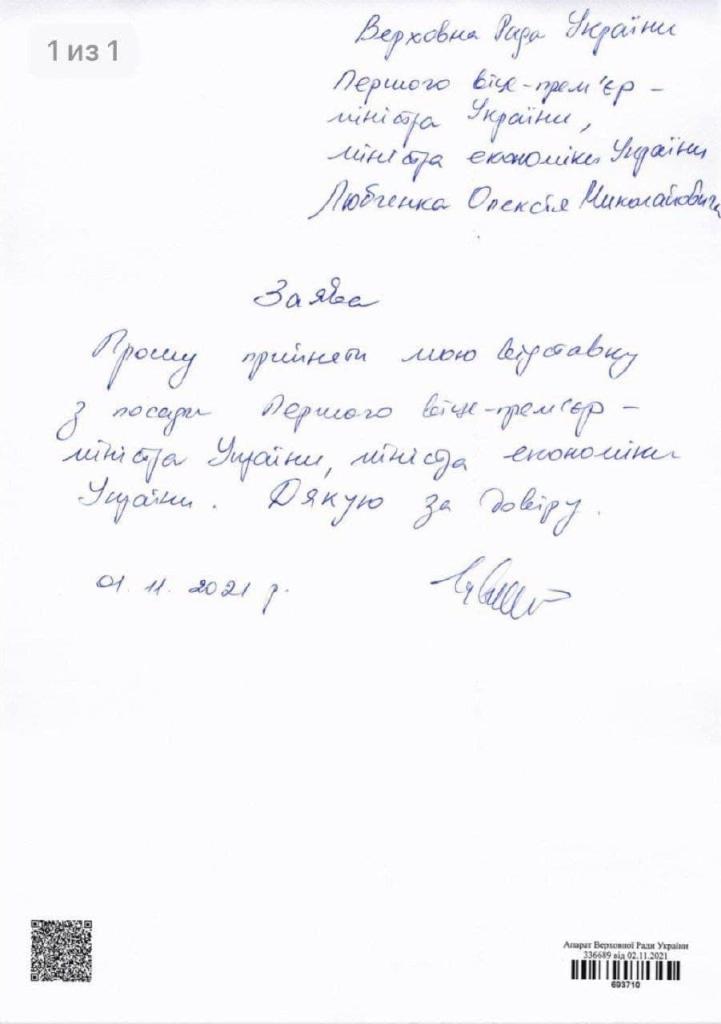 1 из 1
Верховна Рада України
Першого віце-прем'єр -
міністра України,
міністра економіки України
Любченка Олексія Миколайовича
Заява
Прошу прийняти мою відставку
з посади Першого віце-прем'єр -
міністра України, міністра економіки
України. Дякую за довіру.
01.11.2021 р.
Апарат Верховної Ради України
336689 від 02.11.2021
693710